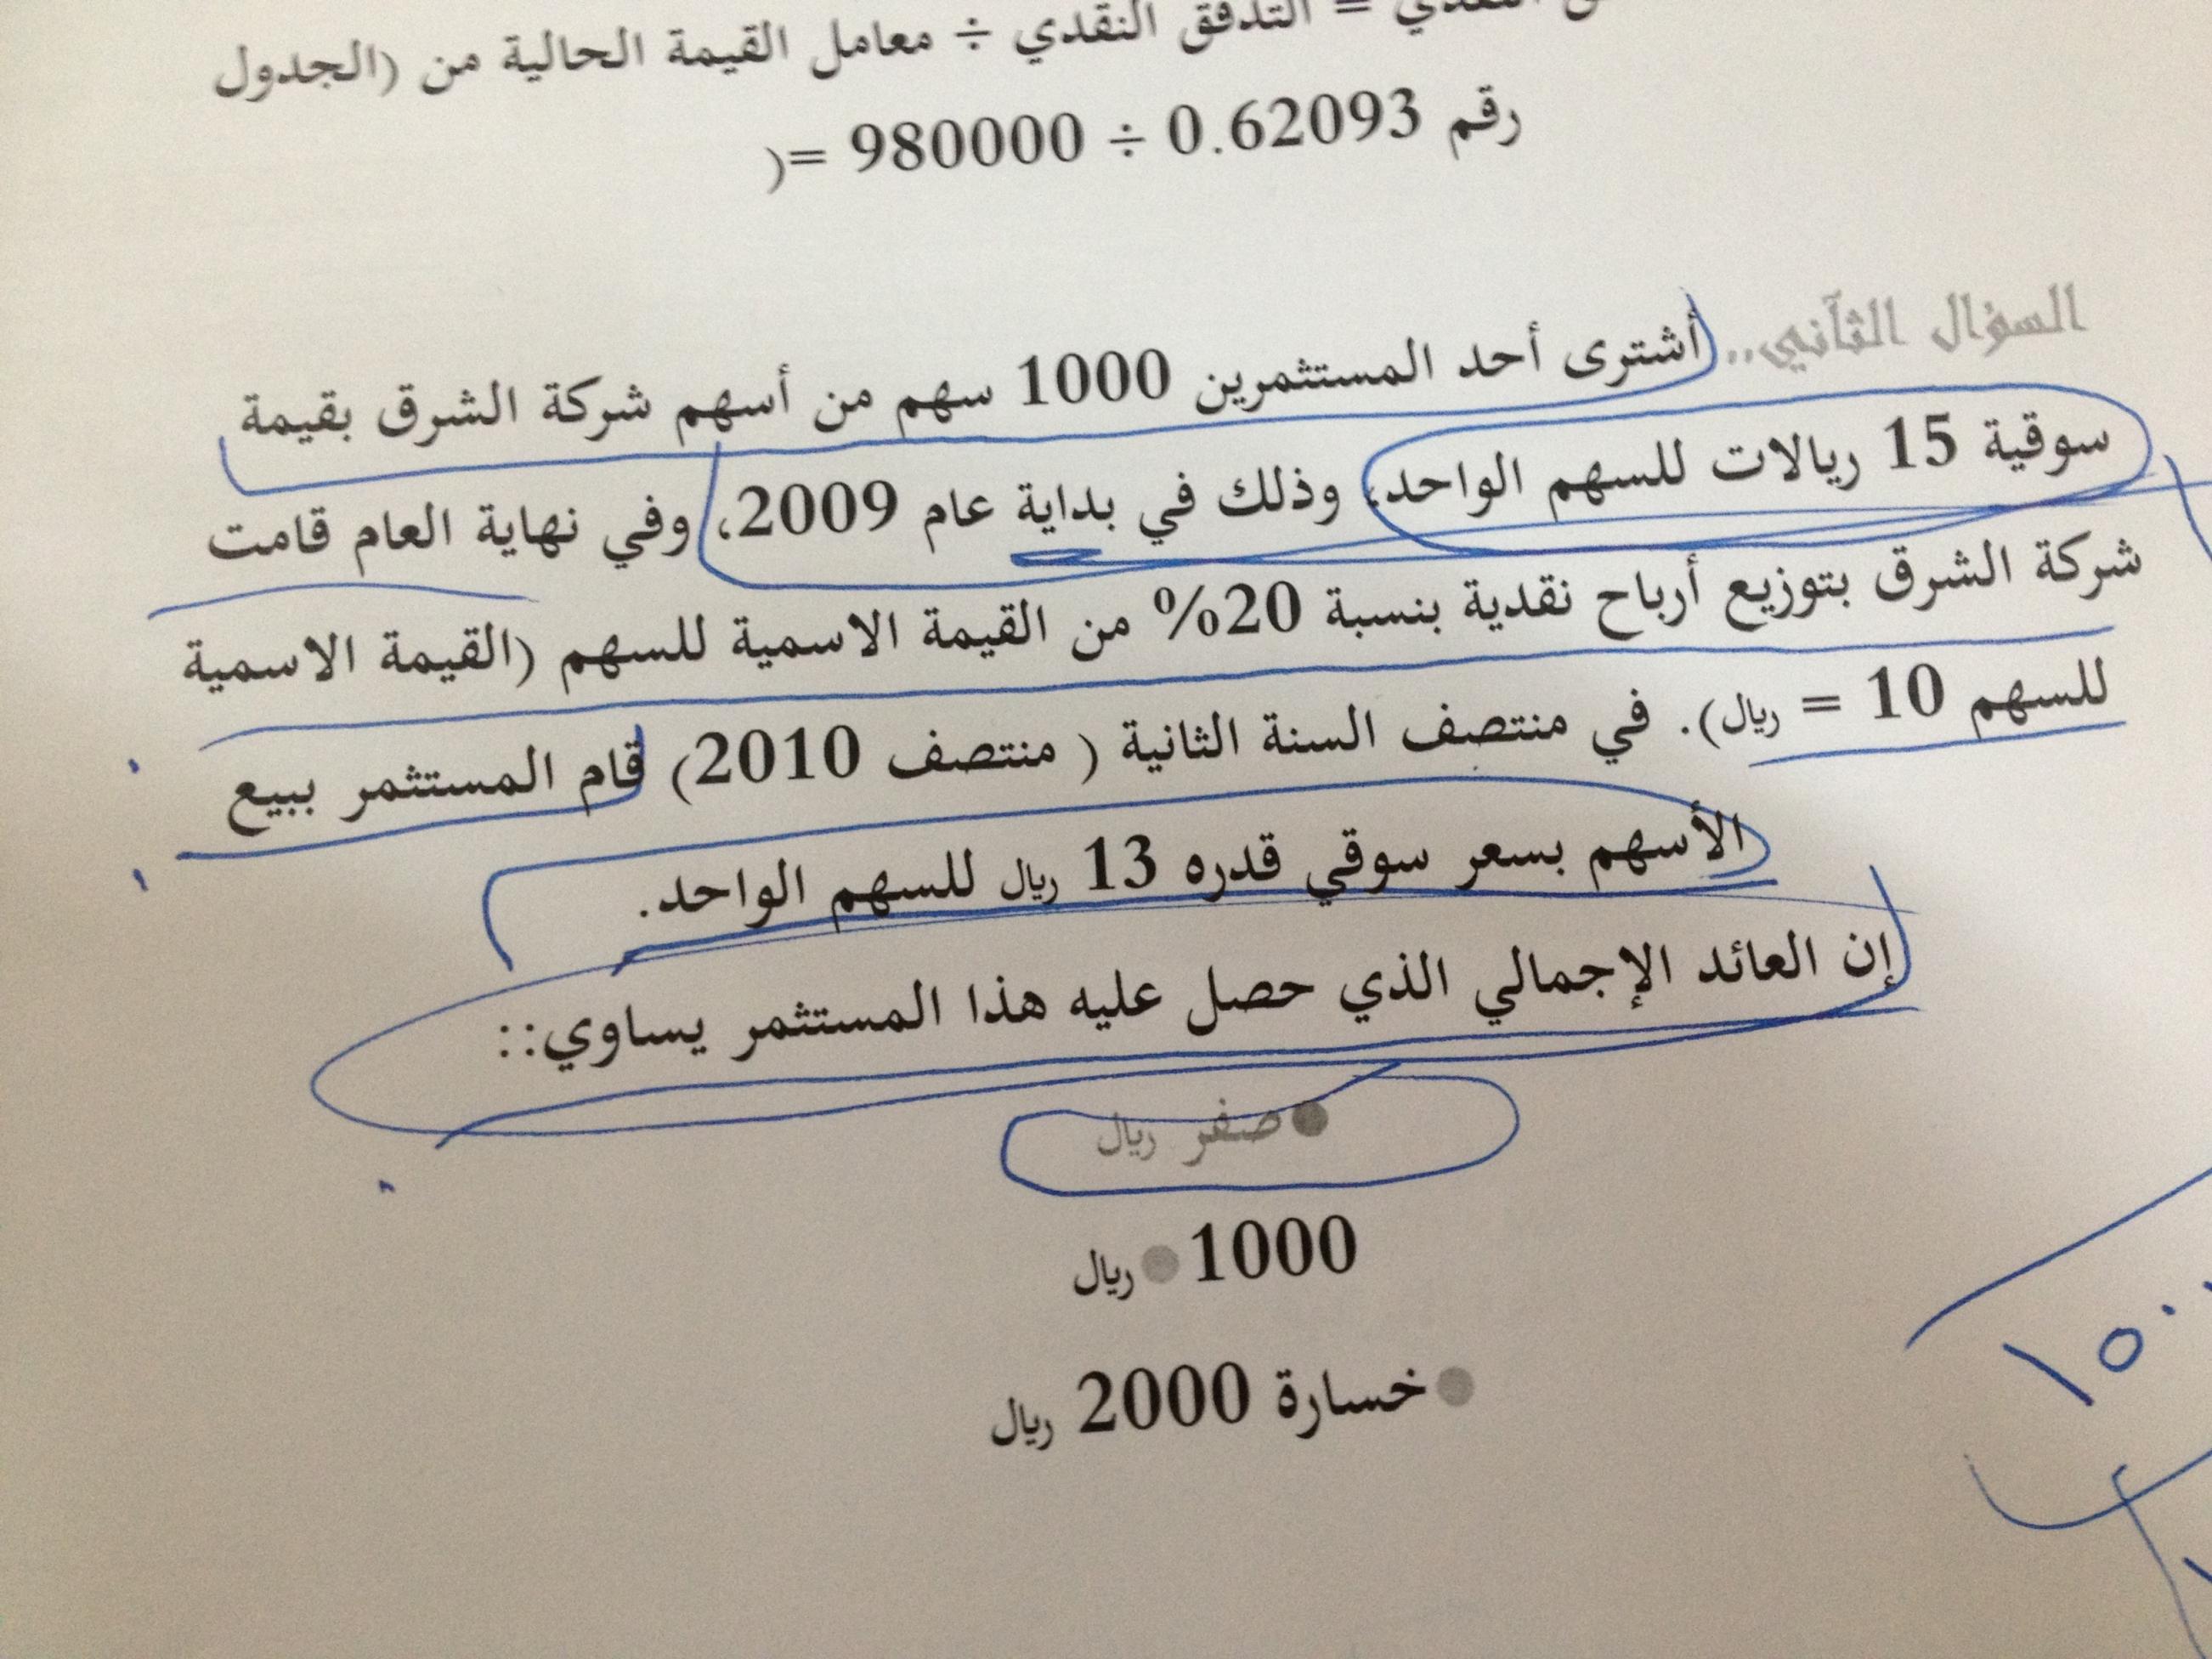 النقدي = التدفق النقدي ÷ معامل القيمة الحالية من (الجدول
رقم 0.62093 ÷ 980000 =(
السؤال الثآني.. أشترى أحد المستثمرين 1000 سهم من أسهم شركة الشرق بقيمة
سوقية 15 ريالات للسهم الواحد، وذلك في بداية عام 2009، وفي نهاية العام قامت
شركة الشرق بتوزيع أرباح نقدية بنسبة 20% من القيمة الاسمية للسهم (القيمة الاسمية
للسهم 10 = ريال). في منتصف السنة الثانية ( منتصف 2010) قام المستثمر ببيع
الأسهم بسعر سوقي قدره 13 ريال للسهم الواحد.
إن العائد الإجمالي الذي حصل عليه هذا المستثمر يساوي::
●صفر ريال
1000● ريال
●خسارة 2000 ريال